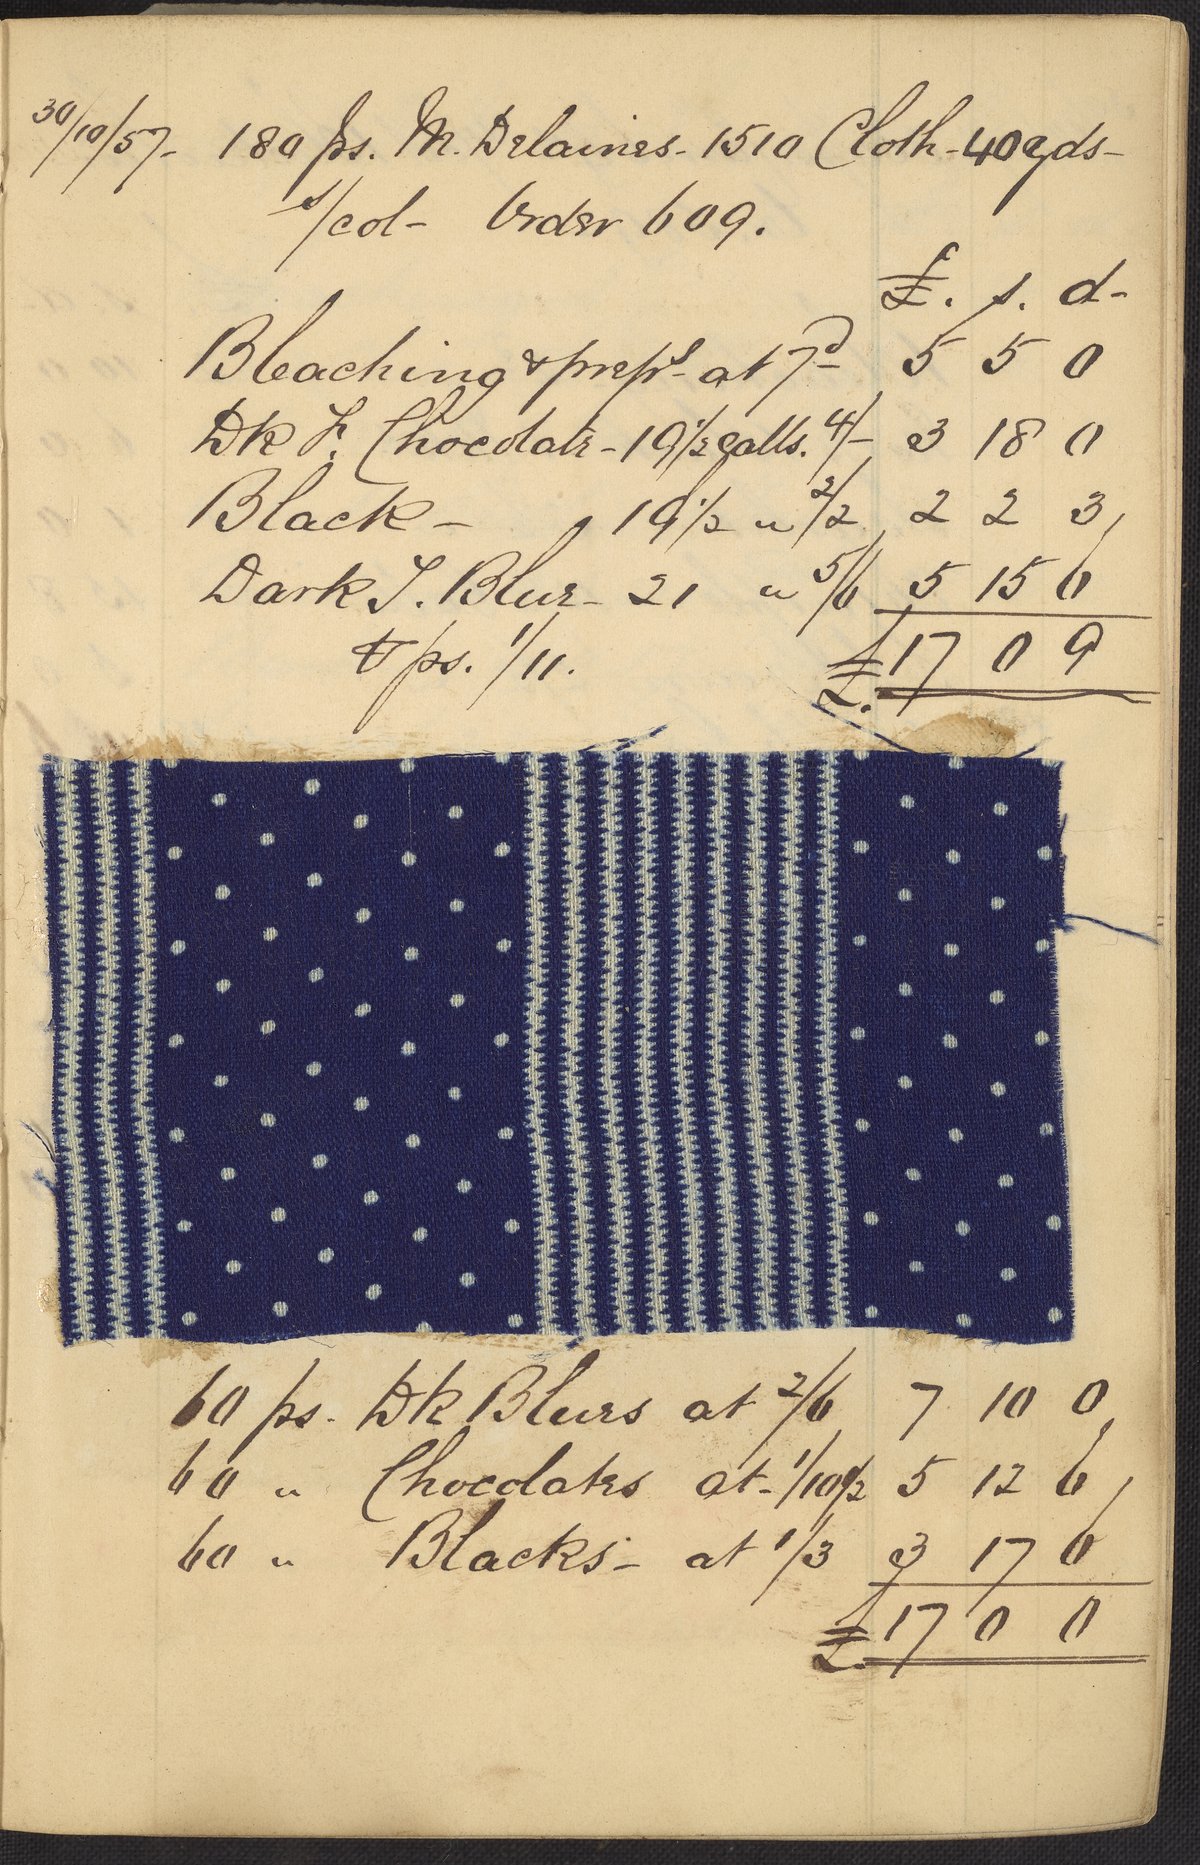 30/10/57- 180 ps. M. Delaines- 1510 Cloth- 40 yds-
s/col- Order 609.
£. s. d-
Bleaching & prepg at 7d- 5 5 0
Dk F. Chocolate- 19½ galls. 4/- 3 18 0
Black- 19½ " 2/2 2 2 3
Dark F. Blue- 21 " 5/6 5 15 6
& ps. 1/11. £. 17 0 9
60 ps. Dk Blues at 2/6 7 10 0
60 " Chocolates at- 1/10½ 5 12 6
60 " Blacks- at 1/3 3 17 6
£. 17 0 0